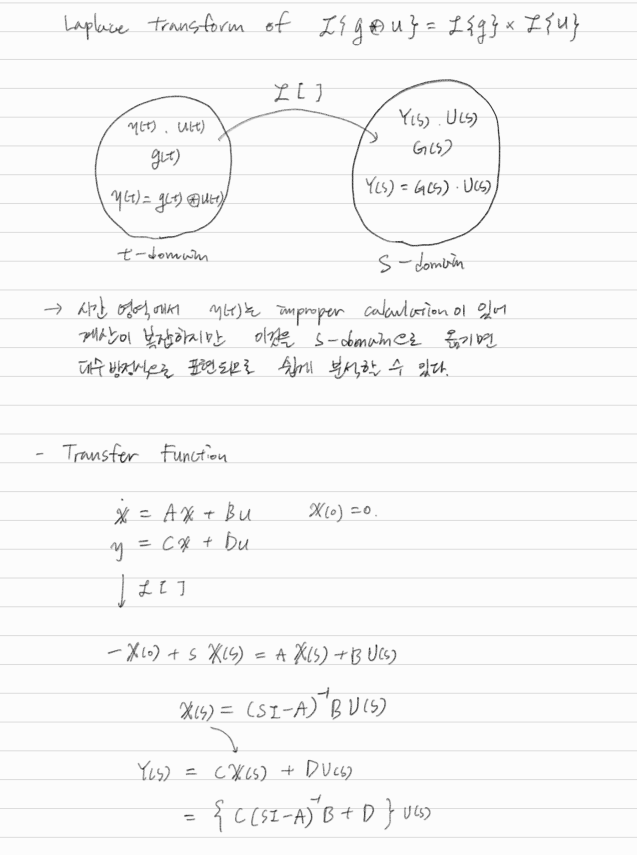 Laplace transform of ℒ{g ⊛ u} = ℒ{g} × ℒ{u}
ℒ[ ]
y(t). u(t)
g(t)
y(t) = g(t) ⊛ u(t)
t-domain
Y(s). U(s)
G(s)
Y(s) = G(s) · U(s)
S-domain
→ 시간 영역에서 y(t)는 improper calculation이 있어
계산이 복잡하지만 이것을 s-domain으로 옮기면
대수방정식으로 표현되므로 쉽게 분석할 수 있다.
- Transfer Function
ẋ = Ax + Bu x(0) = 0.
y = Cx + Du
↓ ℒ[ ]
-x(0) + s X(s) = A X(s) + B U(s)
X(s) = (SI-A)⁻¹ B U(s)
Y(s) = C X(s) + D U(s)
= { C(SI-A)⁻¹ B + D } U(s)